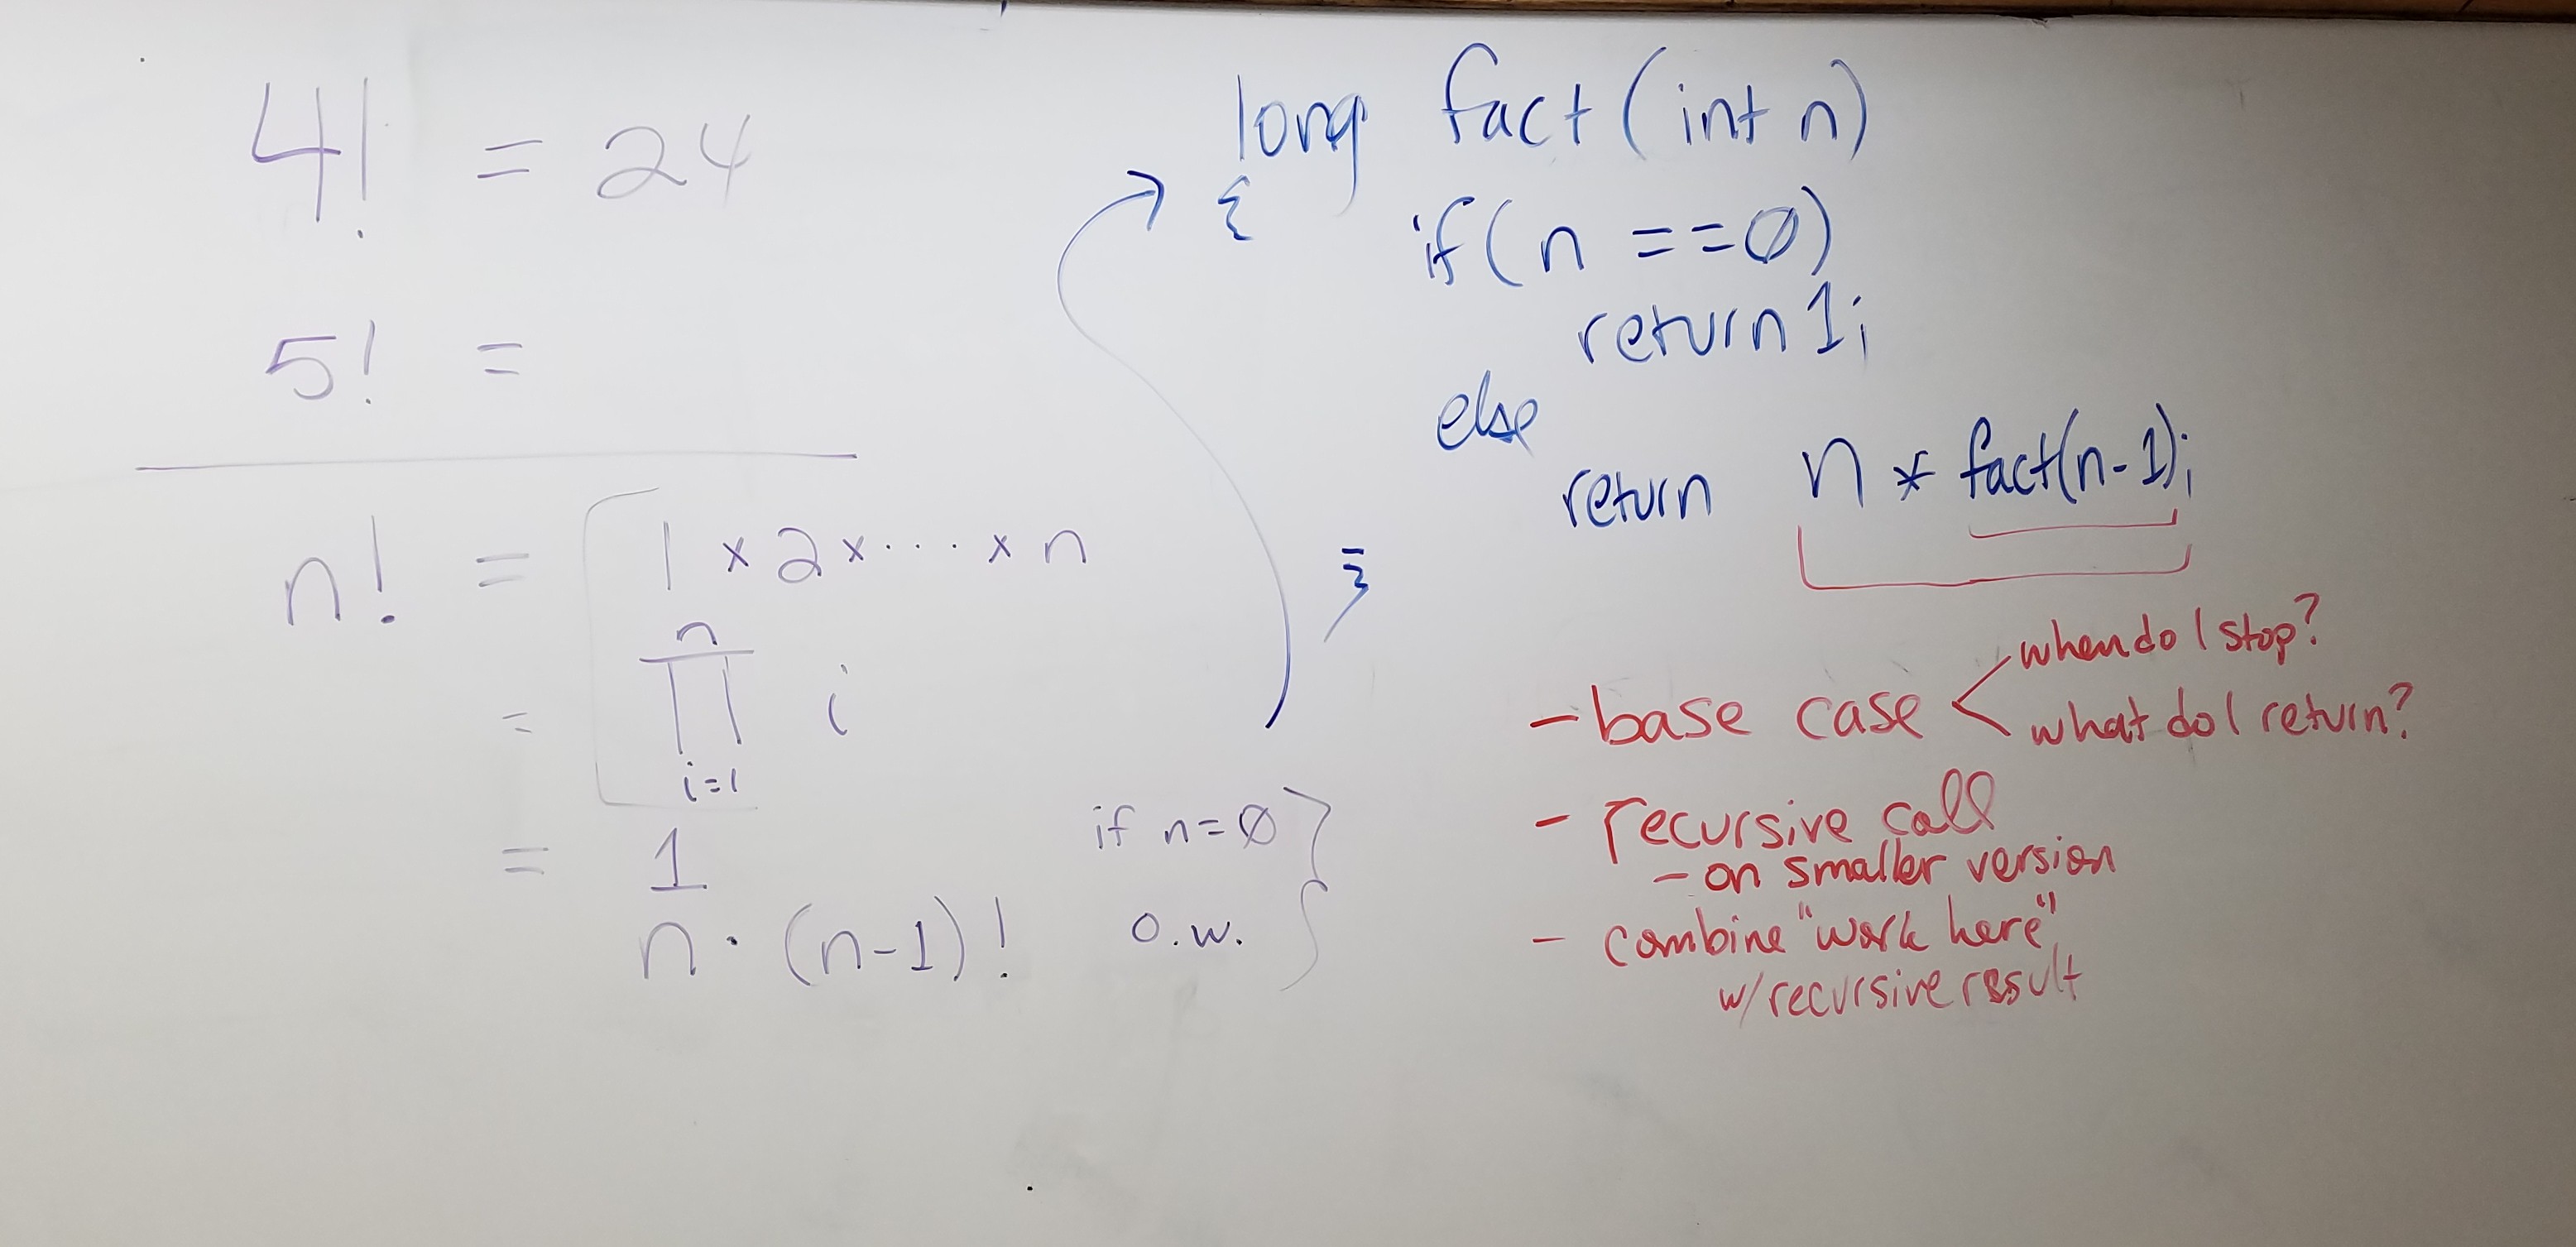 4! = 24
5! =
n! = 1 × 2 × · · · × n
= n ∏ i=1 i
= 1 if n=Ø
n · (n-1)! o.w.
long fact(int n)
{
if(n ==Ø)
return 1;
else
return n * fact(n-1);
}
- base case < when do I stop?
what do I return?
- recursive call
- on smaller version
- combine "work here"
w/ recursive result